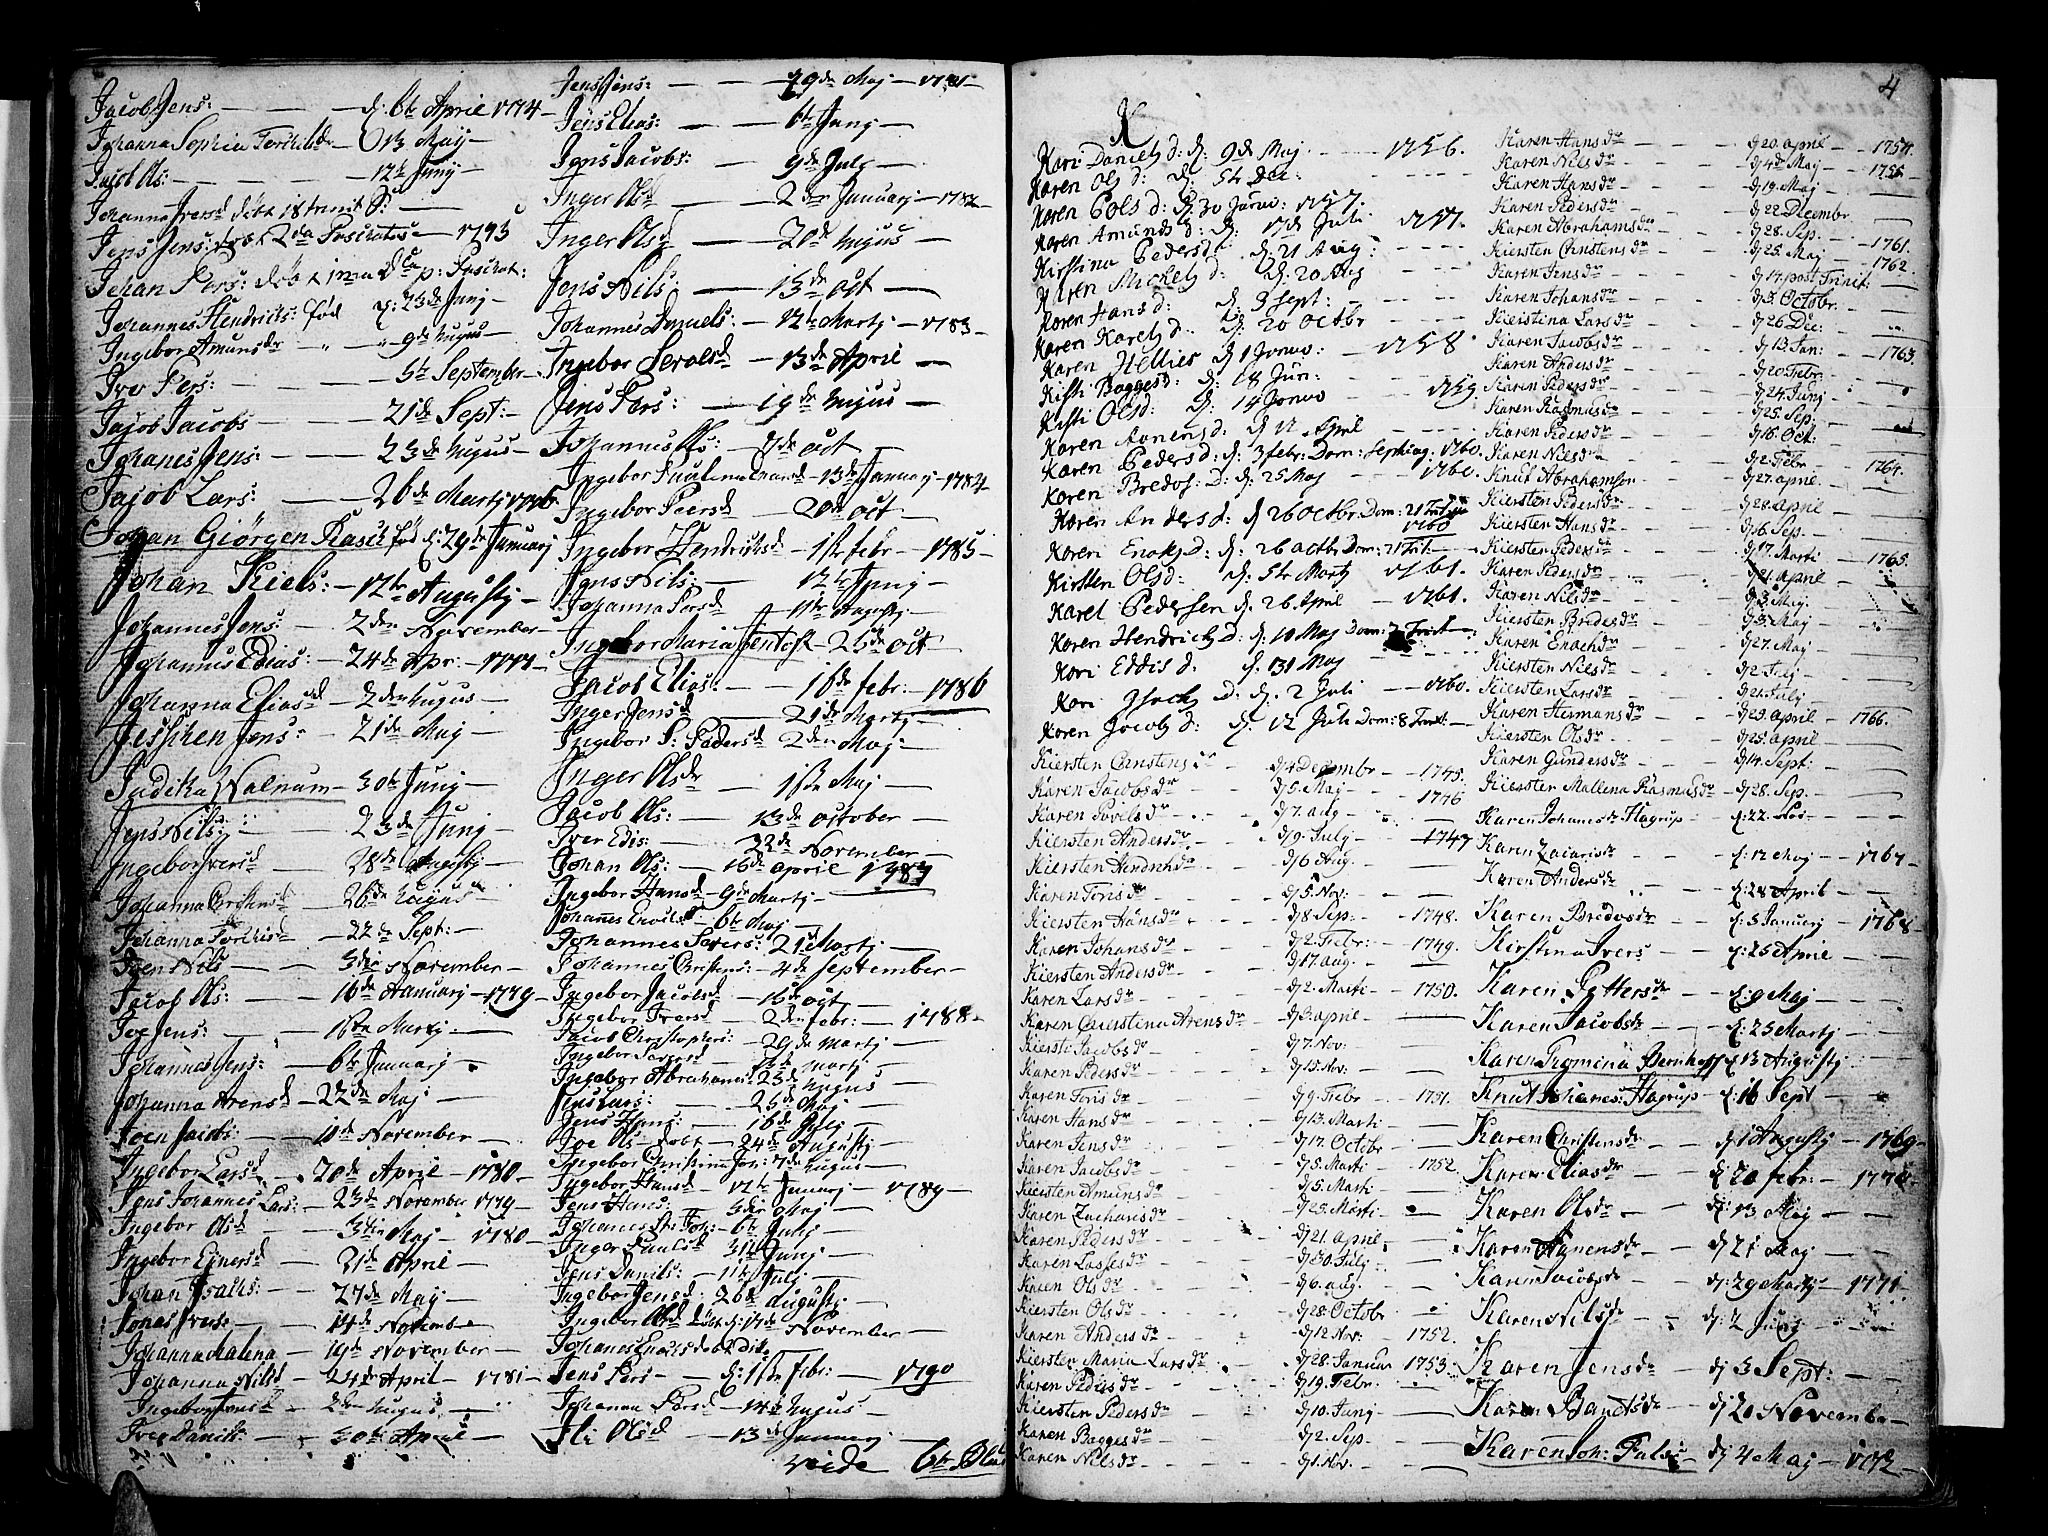 Jacob Jens: — — d: 6te April 1774
Johanna Sophia Torchilsdr — 13 Maij
Jacob Ols: — 12te Junij
Johanna Iversd döbt 18 trinit S: —
Jens Jens: döbt 2da Paschatos — 1775
Johan Pers: döbt 1ma Dca p: Paschat:
Johannes Hendrichs: fød d: 23de Junj —
Ingebor Amunsdr — 9de Augus —
Iver Pers: — 5te September —
Jacob Jacobs — 21de Sept: —
Johanes Jens: — 23de Augus —
Jacob Lars: — 26de Martj 1776
Johan Giørgen Rasch fød d: 29de Januarj
Johan Niels: — 12te Augustj —
Johannes Jens: — 2den November —
Johannes Edias: — 24de Apr: — 1777 —
Johanna Eliasd — 2den Augus —
Jesphen Jens: — 21de Maj —
Judika Walnum — 30te Junj —
Jens Nils: — 23de Junj —
Ingebor Iversd — 28de Augustj —
Johanna Christensd — 26de Augus —
Johanna Torchisd — 22de Sept: —
Iven Nils — 3die November —
Jacob Ols: — 16de Januarj — 1779 —
Joe Jens: — 1ste Martj —
Johannes Jens: — 6te Januarj —
Johanna Arensd — 22de Maj —
Joen Jacobs: — 10de November —
Ingebor Larsd — 20de April — 1780 —
Jens Johannes Lars: — 23de November 1779 —
Ingebor Olsd — 3die Maj — 1780 —
Ingebor Ejnersd — 21de April —
Johan Isachs: — 27de Maj —
Jonas Ivers: — 14de November
Johanna Malena — 19de November —
Johanna Nilsd — 24de April — 1781 —
Ingebor Jensd — 2den Augus —
Iver Daniels: — 30te April —
Jens Jens: — 29de Maj — 1781 —
Jens Elias: — 6te Junj —
Jens Jacobs: — 9de Julj —
Inger Olsd — 2den Januarj — 1782 —
Inger Olsd — 20de Augus —
Jens Nils: — 15de Oct —
Johannes Samuels: — 12te Martj — 1783 —
Ingebor Sevalsd — 13de April —
Jens Pers: — 19de Augus —
Johannes Ols: — 7de Oct —
Ingebor Paulina — 13de Januarj — 1784 —
Ingebor Peersd — 20de Oct —
Ingebor Hendrichsd — 1ste febr — 1785 —
Jens Nils: — 12te Junj —
Johanna Persd — 11te Augustj —
Ingebor Maria Jentoft — 25de Oct
Jacob Elias: — 16de febr: — 1786
Inger Jensd — 21de Martj —
Ingebor P: Pedersd 2den Maj —
Inger Olsdr — 1ste Maj —
Jacob Ols: — 13de October —
Iver Edis: — 22de November —
Johan Ols: — 16de April 1787
Ingebor Hansd — 9de Martj —
Johanes Enochs: — 6te Maj —
Johannes Sivers: 21de Martj —
Johannes Christens: — 4de September —
Ingebor Jacobsd — 16de Oct —
Ingebor Iversd — 2den febr: — 1788 —
Jacob Christophers: — 29de Martj —
Ingebor Siversd — Martj —
Ingebor Abrahams: 23de Augus —
Jens Lars: — 25de Maj —
Jens Hans: — 16de Julj —
Joe Ols — døbt — 24de Augustj —
Ingebor Christina Jen: 7de Augus —
Ingebor Hansd — 12te Januarj — 1789 —
Jens Hans: — 3die Maj —
Johanes — 6te Julj —
Inger Paulsd — 31te Junj —
Jens Daniels: — 11te Julj —
Ingebor Jensd: 26de Augustj —
Ingebor Olsd döbt d: 17de November —
Johanes Enochs döbt Edit
Jens Pers — d: 1ste febr: — 1790
Johanna Persd — 14de Augus —
Jli Olsd — 13de Januarj —
vide 6te Blad
4
K
Kari Daniels d: d: 9de Maj — 1756.
Karen Ols d: d: 5te Dec: - - - -
Karen Pols d: d: 30 Janu: 1757.
Karen Amunds d: d: 17de Juli — 1757.
Kirstina Peders d: d: 21 Aug: - - - -
Karen Michels d: d: 20 Aug - - - -
Karen Hans d: d: 3 Sept: - - - -
Karen Karels d: d: 20 Octbr - - - -
Karen Hellies d 1 Janu: — 1758.
Kisti Baggesd: d: 18 Jun: - - -
Kisti Olsd: d: 14 Janu — 1759.
Karen Arnens d: d 11 April - - - -
Karen Peders d: d: 3 febr: Dom: Septuag: 1760.
Karen Bredes: D: d: 25 Maj — 1760.
Karen Anders d: d 26 Octbr Dom: 21 Trinit 1760
Karen Enoks d: d: 26 Octbr Dom: 21 Trit: —
Kirsten Ols d: d: 5te Martj 1761.
Karel Pedersen d. 26 April — 1761.
Karen Hendrichs D: d: 10 Maj Dom: Trinit
Kari Eddis d: d. 131 Maj - - - -
Kari Isacks D: d. 2 Juli — 1760.
Karen Jacobs d: d. 12 Juli Dom: 8 Trinit: —
Kiersten Christens dr — d 4 Decembr — 1745.
Karen Jacobs dr — d 5. Maj — 1746
Karen Povels dr — d 7. aug —
Kiersten Anders dr — d 9. Julij — 1747
Kiersten Hendrich dr — d 6 Aug. —
Karen Toris dr — d 5. Nov: —
Kiersten Hans dr — d 8 Sep: — 1748.
Karen Johans dr — d 2. Febr: — 1749.
Kiersten Anders dr — d 17. aug. —
Karen Lars dr — d 2. Marti — 1750.
Karen Chierstina Arens dr — d 3. april —
Kiersti Jacobs dr — d 7. Nov: —
Karen Peders dr — d 15. Nov: —
Karen Toris dr — d 9. Febr — 1751.
Karen Hans dr — d 13. Marti —
Karen Jens dr — d 17. Octobr —
Karen Jacobs dr — d 5. Marti — 1752.
Kiersten Amuns dr — d 5. Marti —
Karen Zacharis dr — d 25. Marti —
Karen Peders dr — d 21. april —
Karen Lasses dr — d 30. Julj —
Karen Ols dr — d 6. aug. —
Kiersten Ols dr — d 28. Octobr —
Karen Anders dr — d 12 Nov: — 1752.
Kiersten Maria Lars dr — d 28. Januar 1753.
Karen Peders dr — d 19. Febr. —
Kiersten Peders dr — d 10. Junj —
Karen Bagges dr — d 2. Sep. —
Karen Nils dr — d 1. Nov. —
Karen Hans dr — d 20. april — 1754.
Karen Nils dr — d 4de Maj — 1755
Karen Hans dr — d 19. Maj —
Karen Peders dr — d 22. Decembr —
Karen Abrahams dr — d 28. Sep. —
Kiersten Christens dr — d 25. Maj — 1761.
Karen Jens dr — d 17. post Trinit: 1762.
Karen Johans dr — d 3. Octobr. —
Kierstina Lars dr — d 26 Dec: —
Karen Jacobs dr — d 13. Jan: — 1763.
Karen Anders dr — d 20 Febr. —
Karen Peders dr — d 24. Junj —
Karen Rasmus dr — d 25. Sep. —
Karen Peders dr — d 16. Oct: —
Karen Nils dr — d 2. Febr. — 1764.
Knut Abrahamsøn — d 27. april. —
Kiersten Peders dr — d 28. april —
Kiersten Hans dr — d 16. Sep. —
Kiersten Peders dr — d 17. Marti — 1765.
Karen Peders dr — d 21. april —
Karen Nils dr — d 3. Maj. —
Kiersten Bredes dr — d 3. Maj —
Karen Enoch dr — d 27. Maj —
Kiersten Niels dr — d 2. Julj —
Kiersten Lars dr — d 21. Julij —
Karen Hermans dr — d 29. april — 1766.
Kiersten Ols dr — d 25. april —
Karen Gunders dr — d 14. Sept: —
Kiersten Mallena Rasmus dr — d 28. Sep. —
Karen Johannes dr Hagrup — d: 22. —
Karen Zacaris dr — d: 12 Maj — 1767 —
Karen Anders dr — d: 28 April —
Karen Bredes dr — d: 3 Januarj — 1768 —
Kirstina Ivers — d: 25 April —
Karen Petters dr — d: 9 Maj —
Karen Jacobs dr — d: 25 Martj —
Karen Tromina Bernhoft d 13 Augustj
Knut Johanes: Hagrup — d: 16 Sept —
Karen Christens dr — d 1 Augustj — 1769 —
Karen Elias dr — d 20 febr: — 1770
Karen Ols dr — d: 13 Maj —
Karen Agnens dr — d 21 Maj —
Karen Jacobs dr — d: 29 Martj — 1771
Karen Nils dr — d: 2 Junj —
Karen Jens dr — dj 3 Sept: —
Karen Bandts dr — d 20 Novembe —
Karen Joh: Fals: — dj 4 Maj — 1772 —